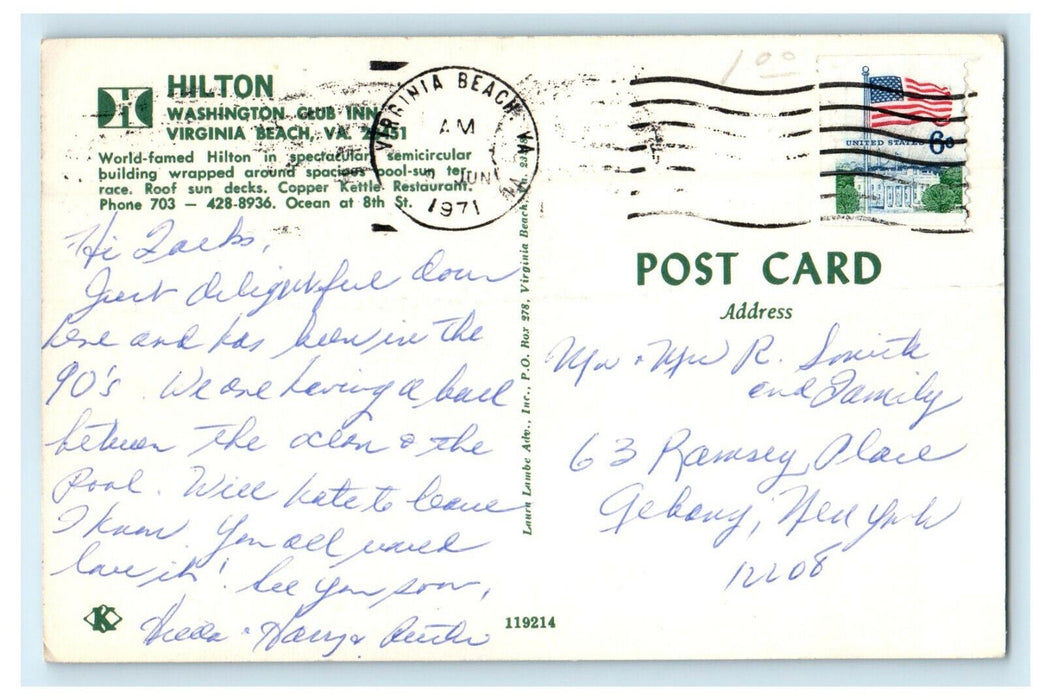 HILTON
WASHINGTON CLUB INN
VIRGINIA BEACH, VA. 51
World-famed Hilton in spectacular semicircular
building wrapped around spacious pool-sun ter
race. Roof sun decks. Copper Kettle Restaurant.
Phone 703 — 428-8936. Ocean at 8th St.
VIRGINIA BEACH, VA
AM
JUN
1971
1.00
UNITED STATES 6c
Hi
Just delightful down
here and has been in the
90's. We are having a ball
between the ocean & the
Pool. Will hate to leave
I know. You all would
love it! See you soon,
Harry &
Laura Lambe Adv., Inc., P.O. Box 278, Virginia Beach, Va.
K
119214
POST CARD
Address
Mr & Mrs R. Smith
and Family
63 Ramsey Place
Albany, New York
12208